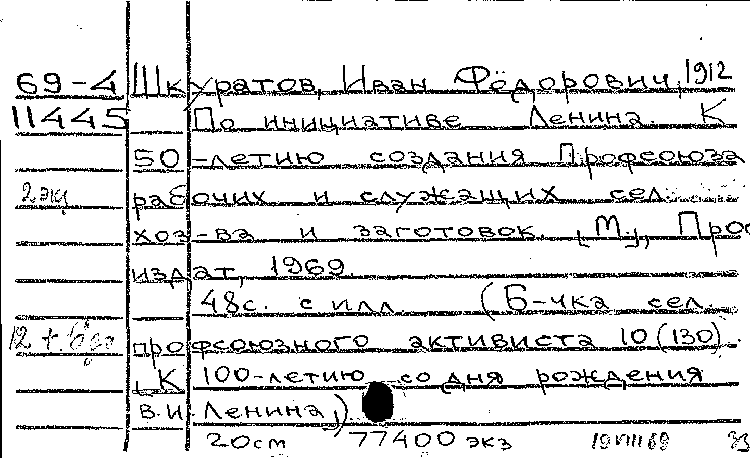 69-4 Шкуратов, Иван Фёдорович, 1912
11445 По инициативе Ленина. К
50-летию создания Профсоюза
2 экз рабочих и служащих сел.
хоз-ва и заготовок. [М.], Проф
издат, 1969.
48с. с илл. (Б-чка сел.
профсоюзного активиста 10(130).
[К 100-летию со дня рождения
В.И. Ленина])
20см 77400 экз 19 VIII 69